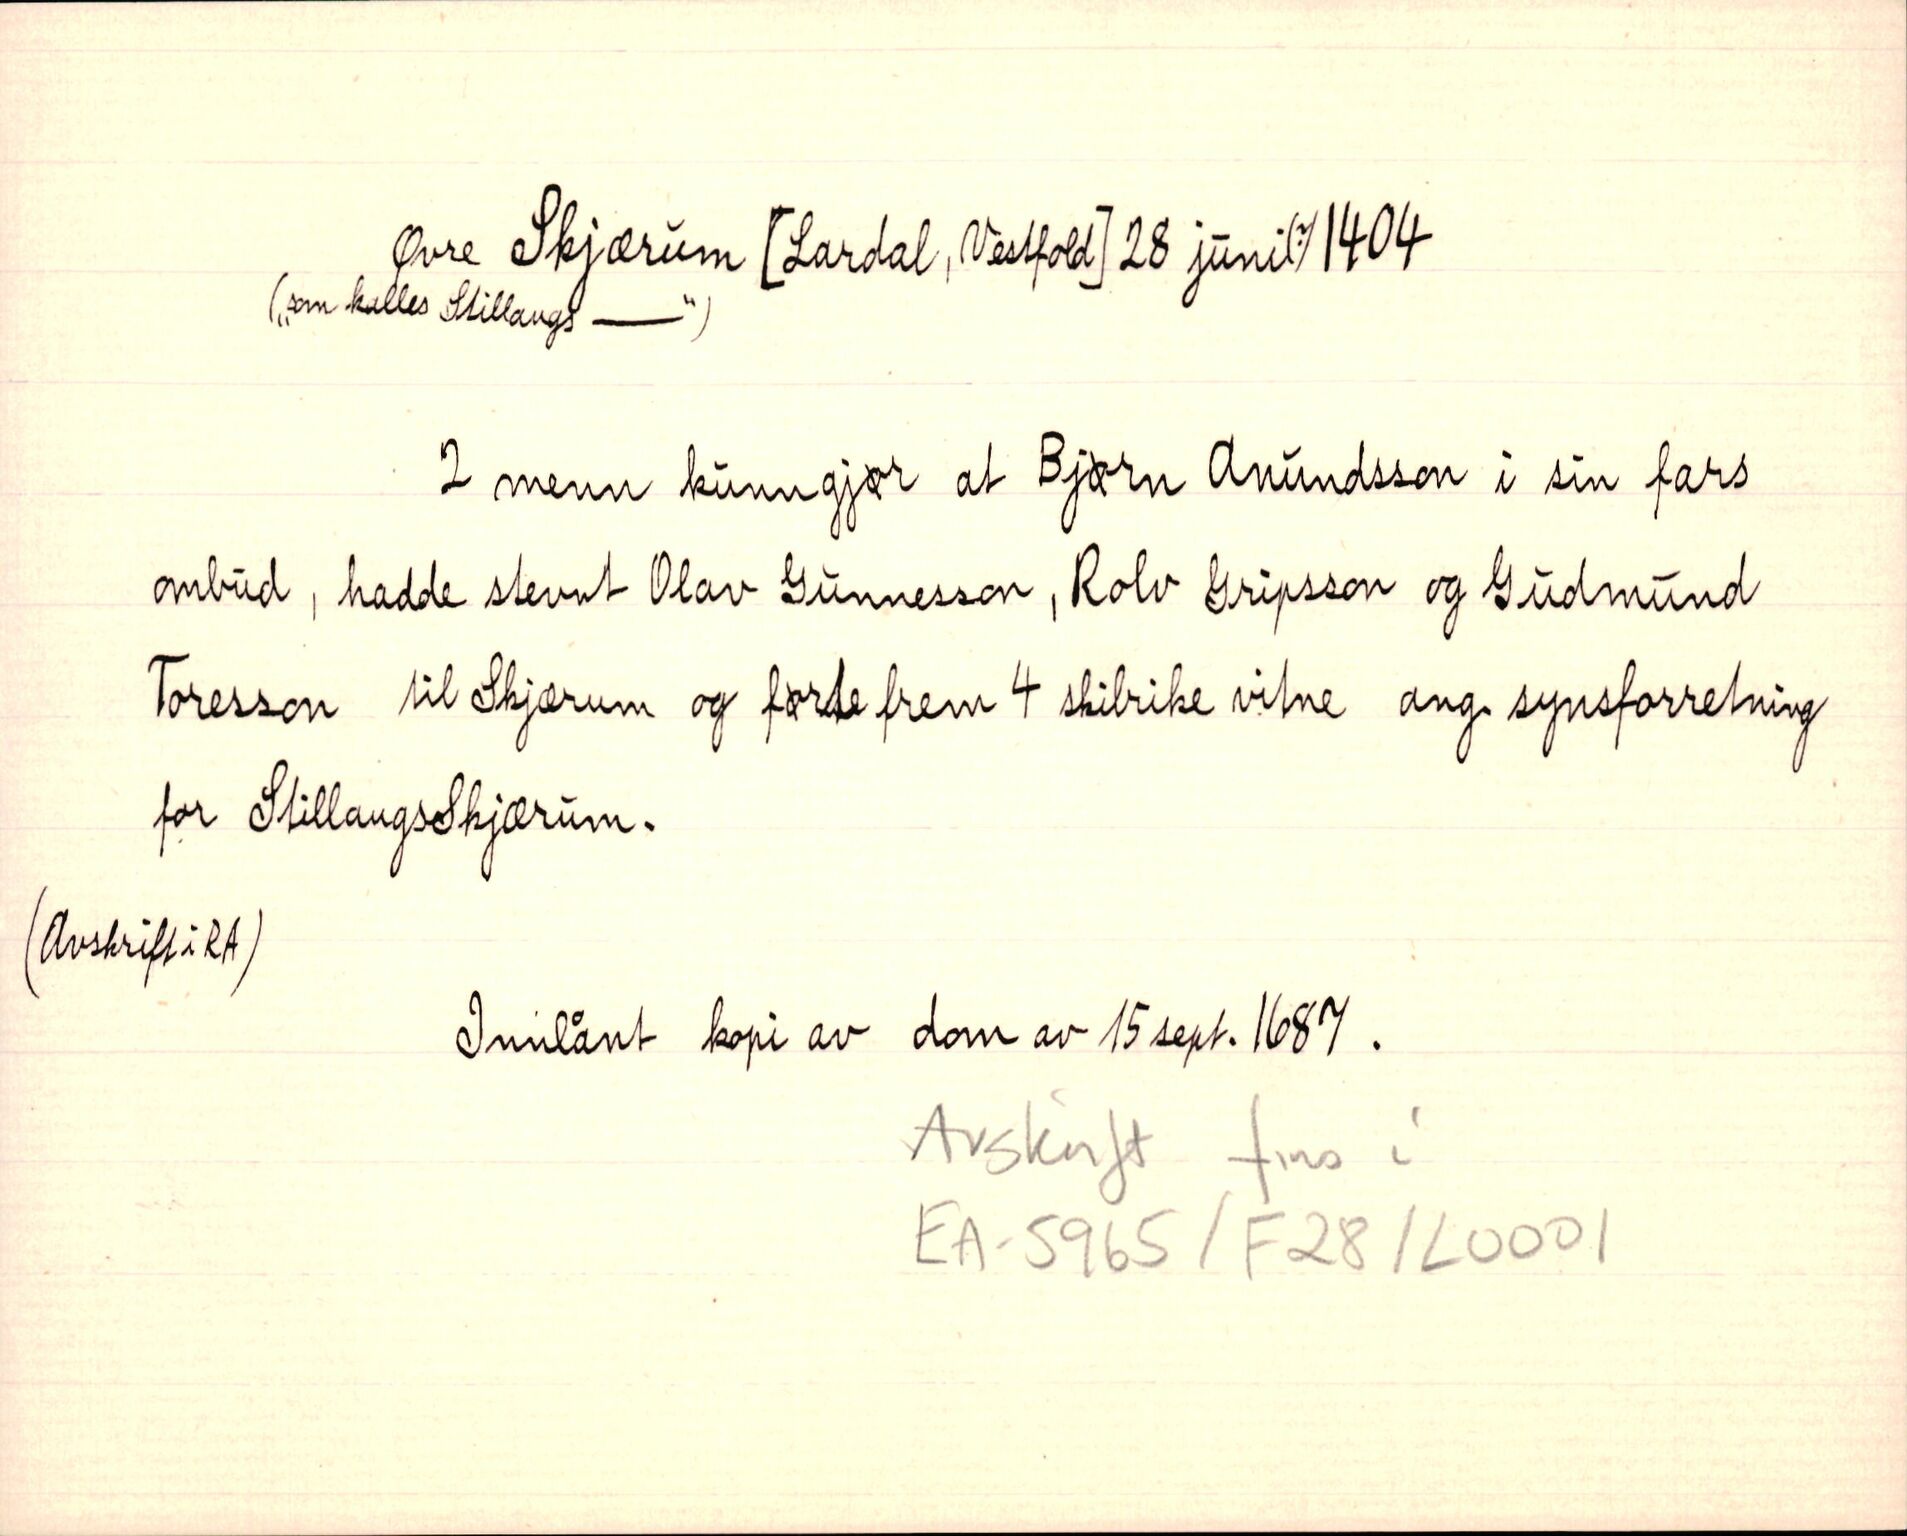 Øvre Skjærum [Lardal, Vestfold] 28 juni(?) 1404
(„som kalles Stillaugs ——“)
2 menn kunngjør at Bjørn Anundsson i sin fars
ombud, hadde stevnt Olav Gunnesson, Rolv Gripsson og Gudmund
Toresson til Skjærum og førte frem 4 skilrike vitne ang. synsforretning
for StillaugsSkjærum.
(Avskrift i RA)
Innlånt kopi av dom av 15 sept. 1687.
Avskrift fins i
EA-5965/F28/L0001